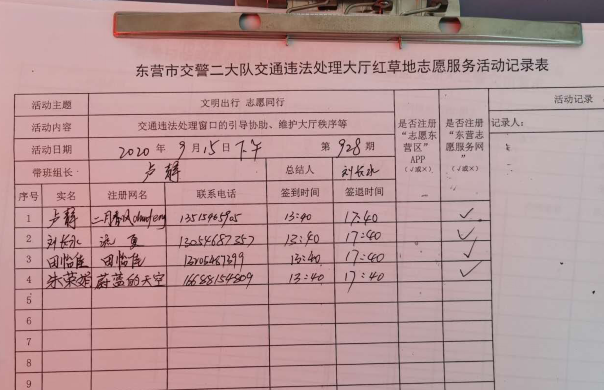 东营市交警二大队交通违法处理大厅红草地志愿服务活动记录表
活动主题 文明出行 志愿同行 是否注册“志愿东营区”APP（√或×） 是否注册“东营志愿服务网”（√或×） 活动记录
活动内容 交通违法处理窗口的引导协助、维护大厅秩序等 记录人：
活动日期 2020 年 9 月 15 日 下午 第 928 期
带班组长 卢静 总结人 刘长水
序号 实名 注册网名 联系电话 签到时间 签退时间
1 卢静 二月春风 13515465905 13:40 17:40 ✓
2 刘长水 13054687357 13:40 17:40 ✓
3 田临佳 田临佳 13:40 17:40 ✓
4 朱荣娟 蔚蓝的天空 16688154809 13:40 17:40 ✓
5
6
7
8
9